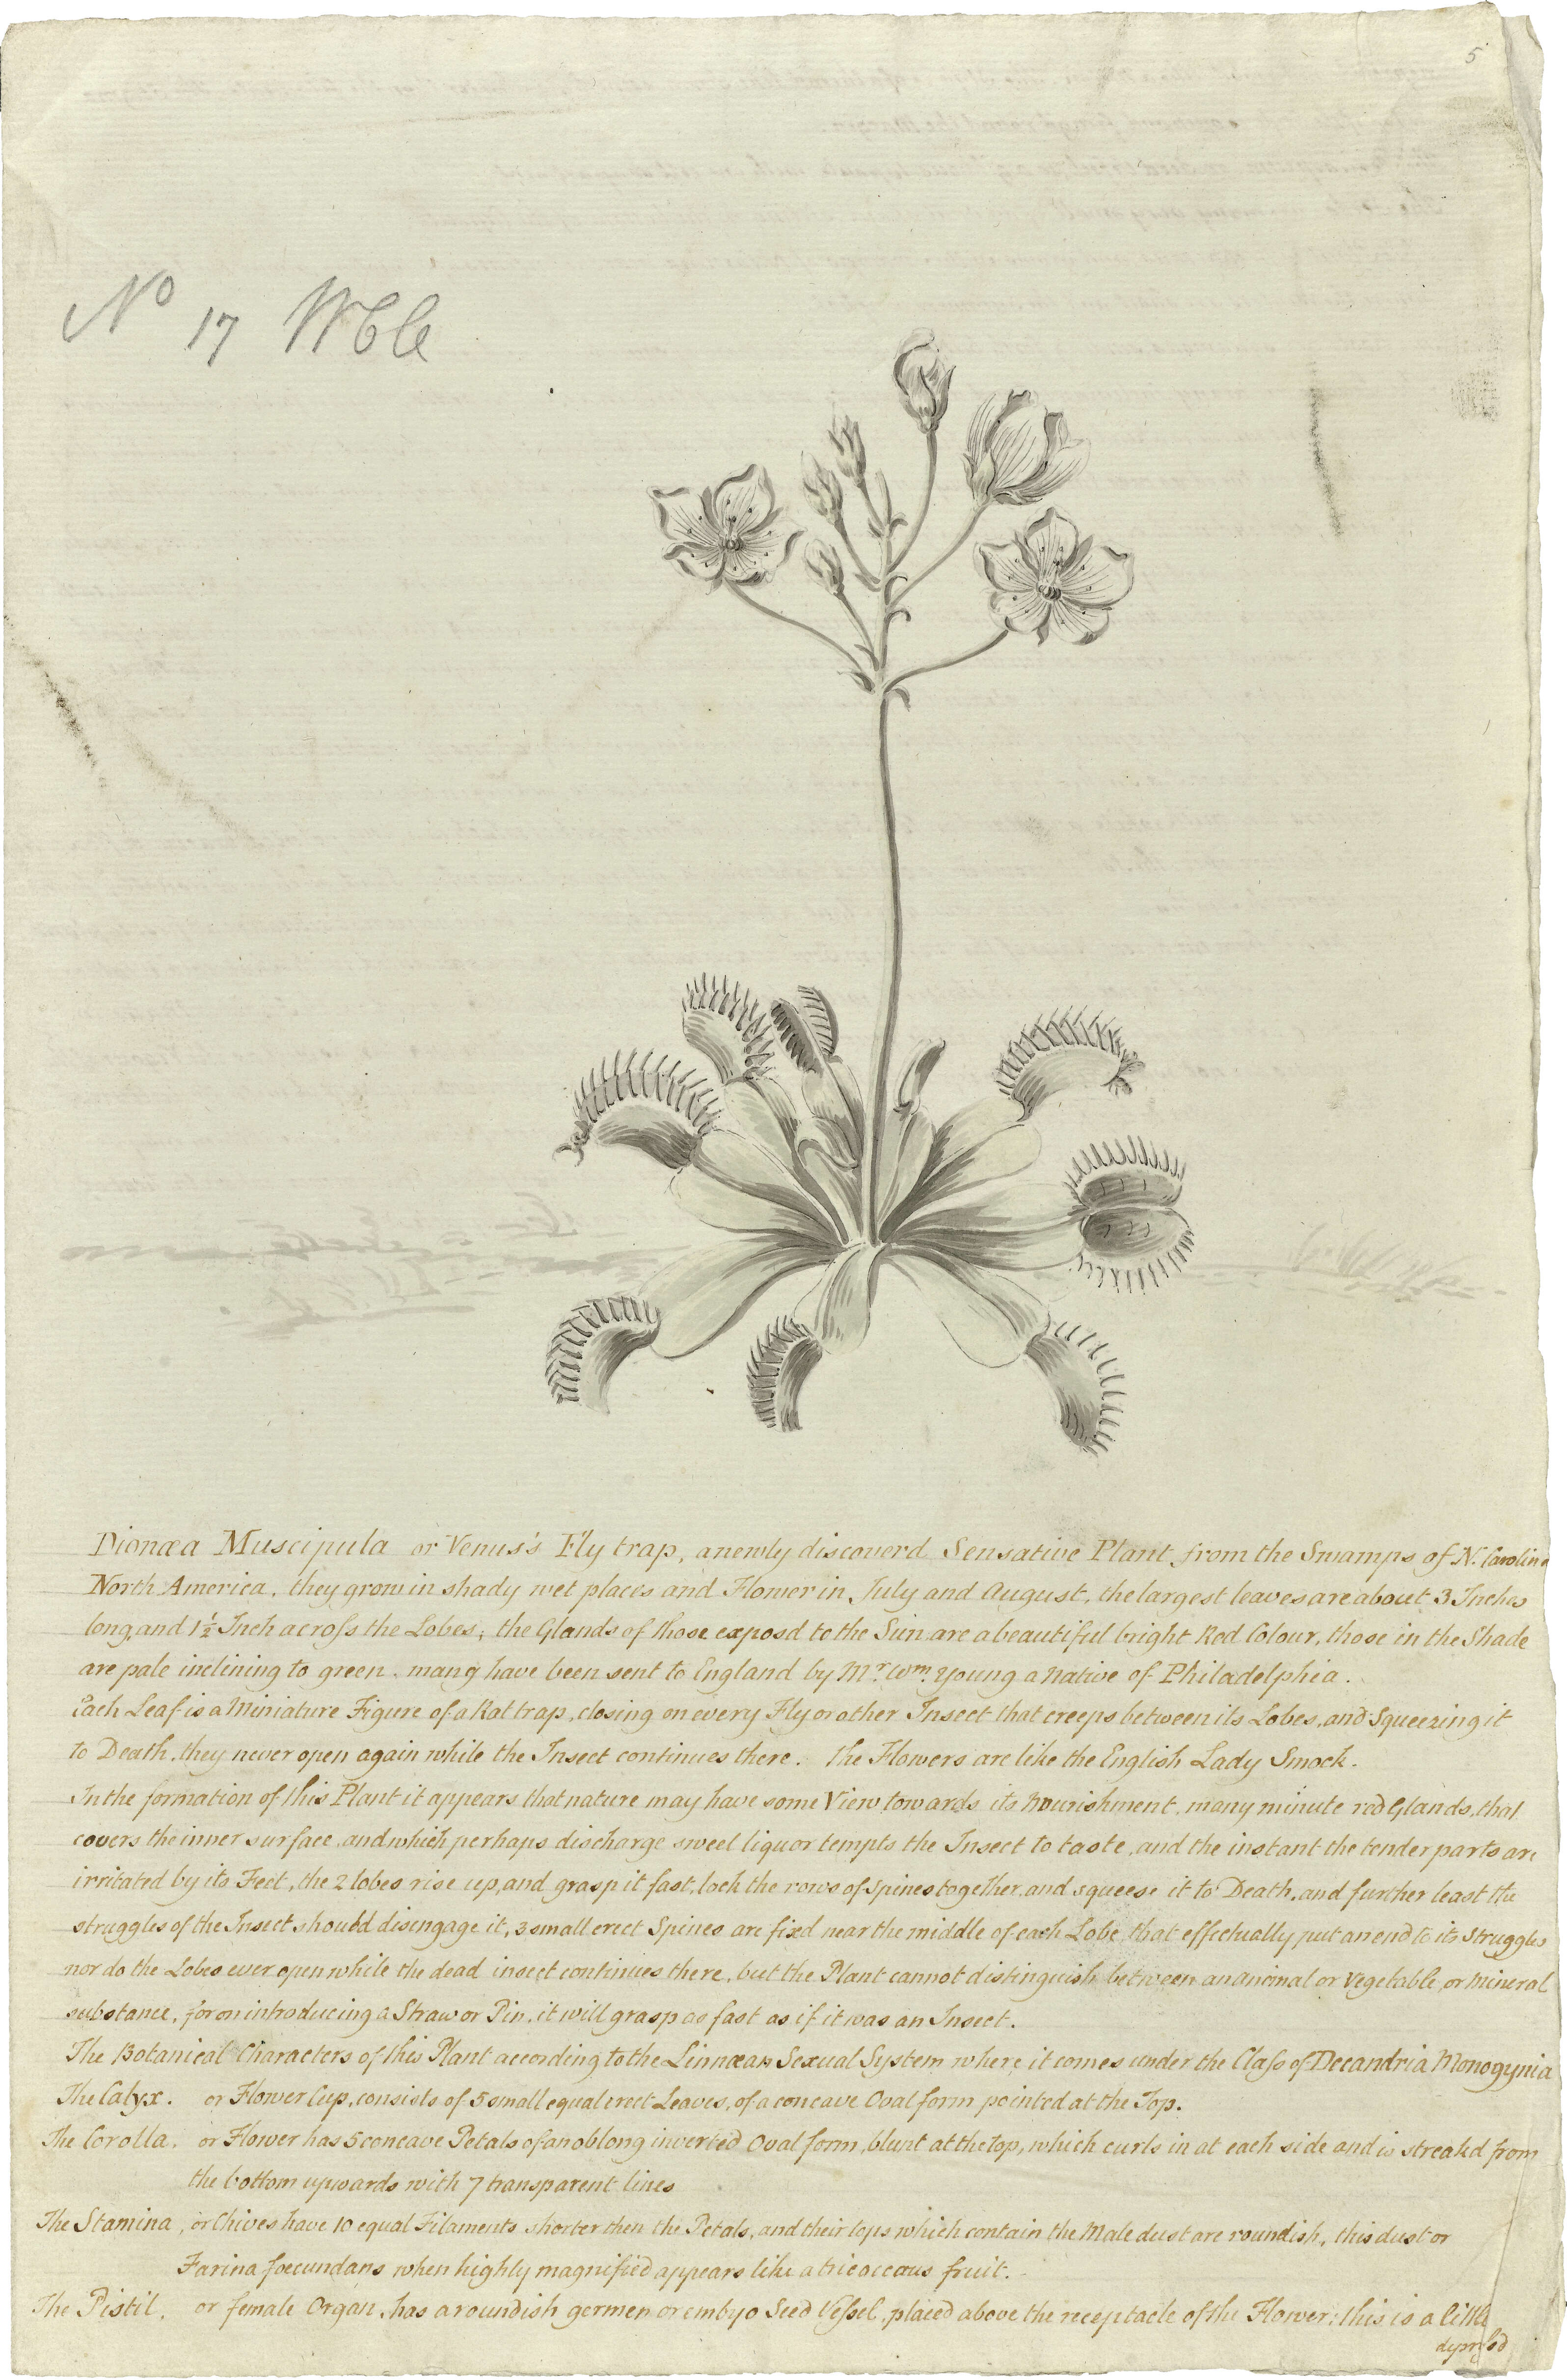 5
No 17 Wble
Dionæa Muscipula or Venus's Fly trap, a newly discoverd Sensative Plant from the Swamps of N. Carolina
North America. they grow in shady wet places and Flower in July and August, the largest leaves are about 3 Inches
long, and 1½ Inch across the Lobes; the Glands of those exposd to the Sun are a beautiful bright Red Colour, those in the Shade
are pale inclining to green. many have been sent to England by Mr. Wm. Young a Native of Philadelphia.
Each Leaf is a Miniature Figure of a Rat trap, closing on every Fly or other Insect that creeps between its Lobes, and Squeezing it
to Death. they never open again while the Insect continues there. the Flowers are like the English Lady Smock.
In the formation of this Plant it appears that nature may have some View towards its Nourishment, many minute red Glands, that
covers the inner surface, and which perhaps discharge sweet liquor tempts the Insect to taste, and the instant the tender parts are
irritated by its Feet, the 2 lobes rise up, and grasp it fast, lock the rows of spines together, and squeese it to Death, and further least the
struggles of the Insect should disengage it, 3 small erect Spines are fixd near the middle of each Lobe, that effectually put an end to its Struggles
nor do the Lobes ever open while the dead insect continues there, but the Plant cannot distinguish between an animal or Vegetable, or Mineral
substance, for on introducing a Straw or Pin, it will grasp as fast as if it was an Insect.
The Botanical Characters of this Plant according to the Linnæan Sexual System where it comes under the Class of Decandria Monogynia
The Calyx. or Flower Cup, consists of 5 small equal erect Leaves, of a concave Oval form pointed at the Top.
The Corolla. or Flower has 5 concave Petals of an oblong inverted Oval form, blunt at the top, which curls in at each side and is streakd from
the bottom upwards with 7 transparent lines
The Stamina, or Chives have 10 equal Filaments shorter then the Petals, and their tops which contain the Male dust are roundish, this dust or
Farina foecundans when highly magnified appears like a tricoccous fruit.
The Pistil. or female Organ, has a roundish germen or embyo Seed Vessel, placed above the receptacle of the Flower: this is a little